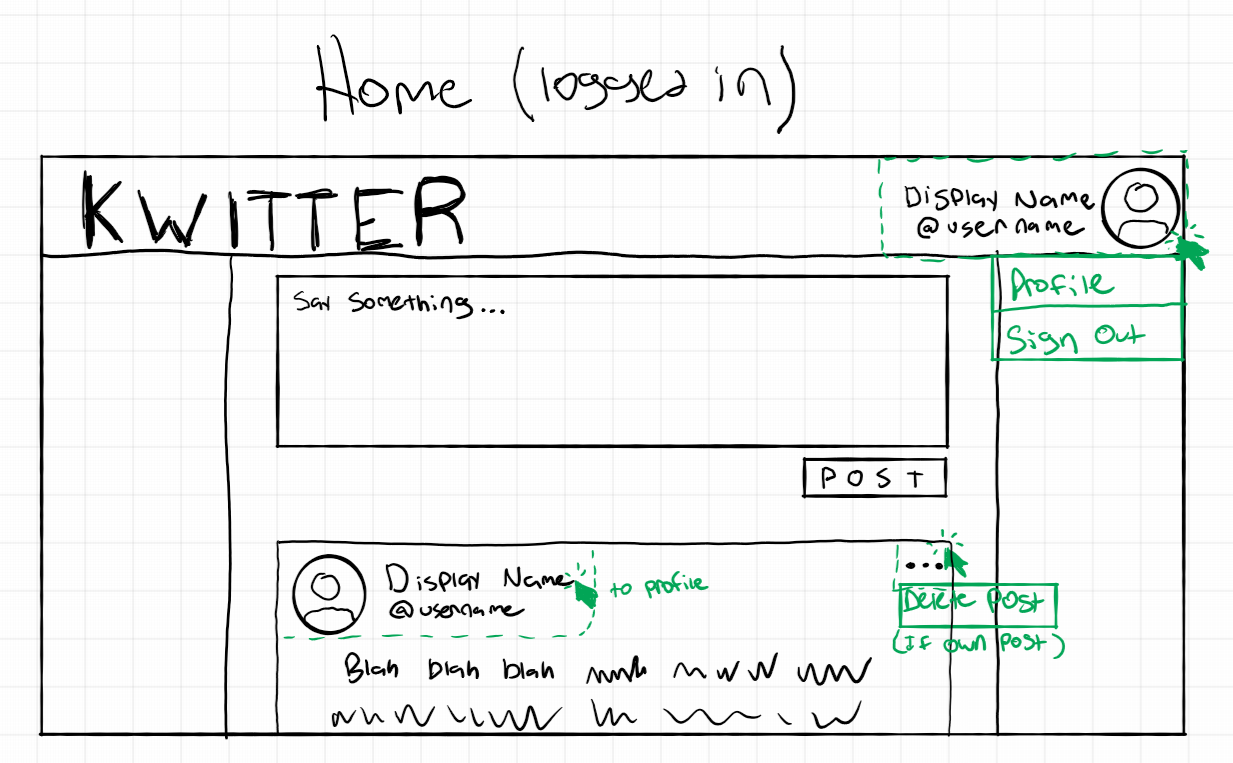 Home (logged in)
KWITTER
Display Name
@username
Profile
Sign Out
Say something...
POST
...
Display Name
@username
to profile
Delete Post
(If own post)
Blah blah blah